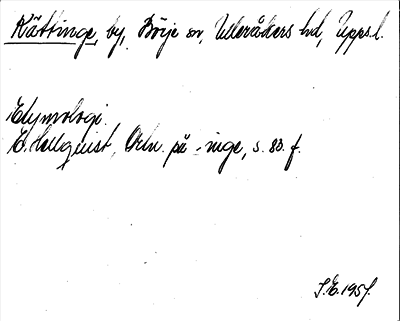 Kättinge, by, Börje sn, Ulleråkers hd, Upps.l.
Etymologi.
E. Hellquist, Ortn. på -inge, s. 83. f.
S.E. 1957.